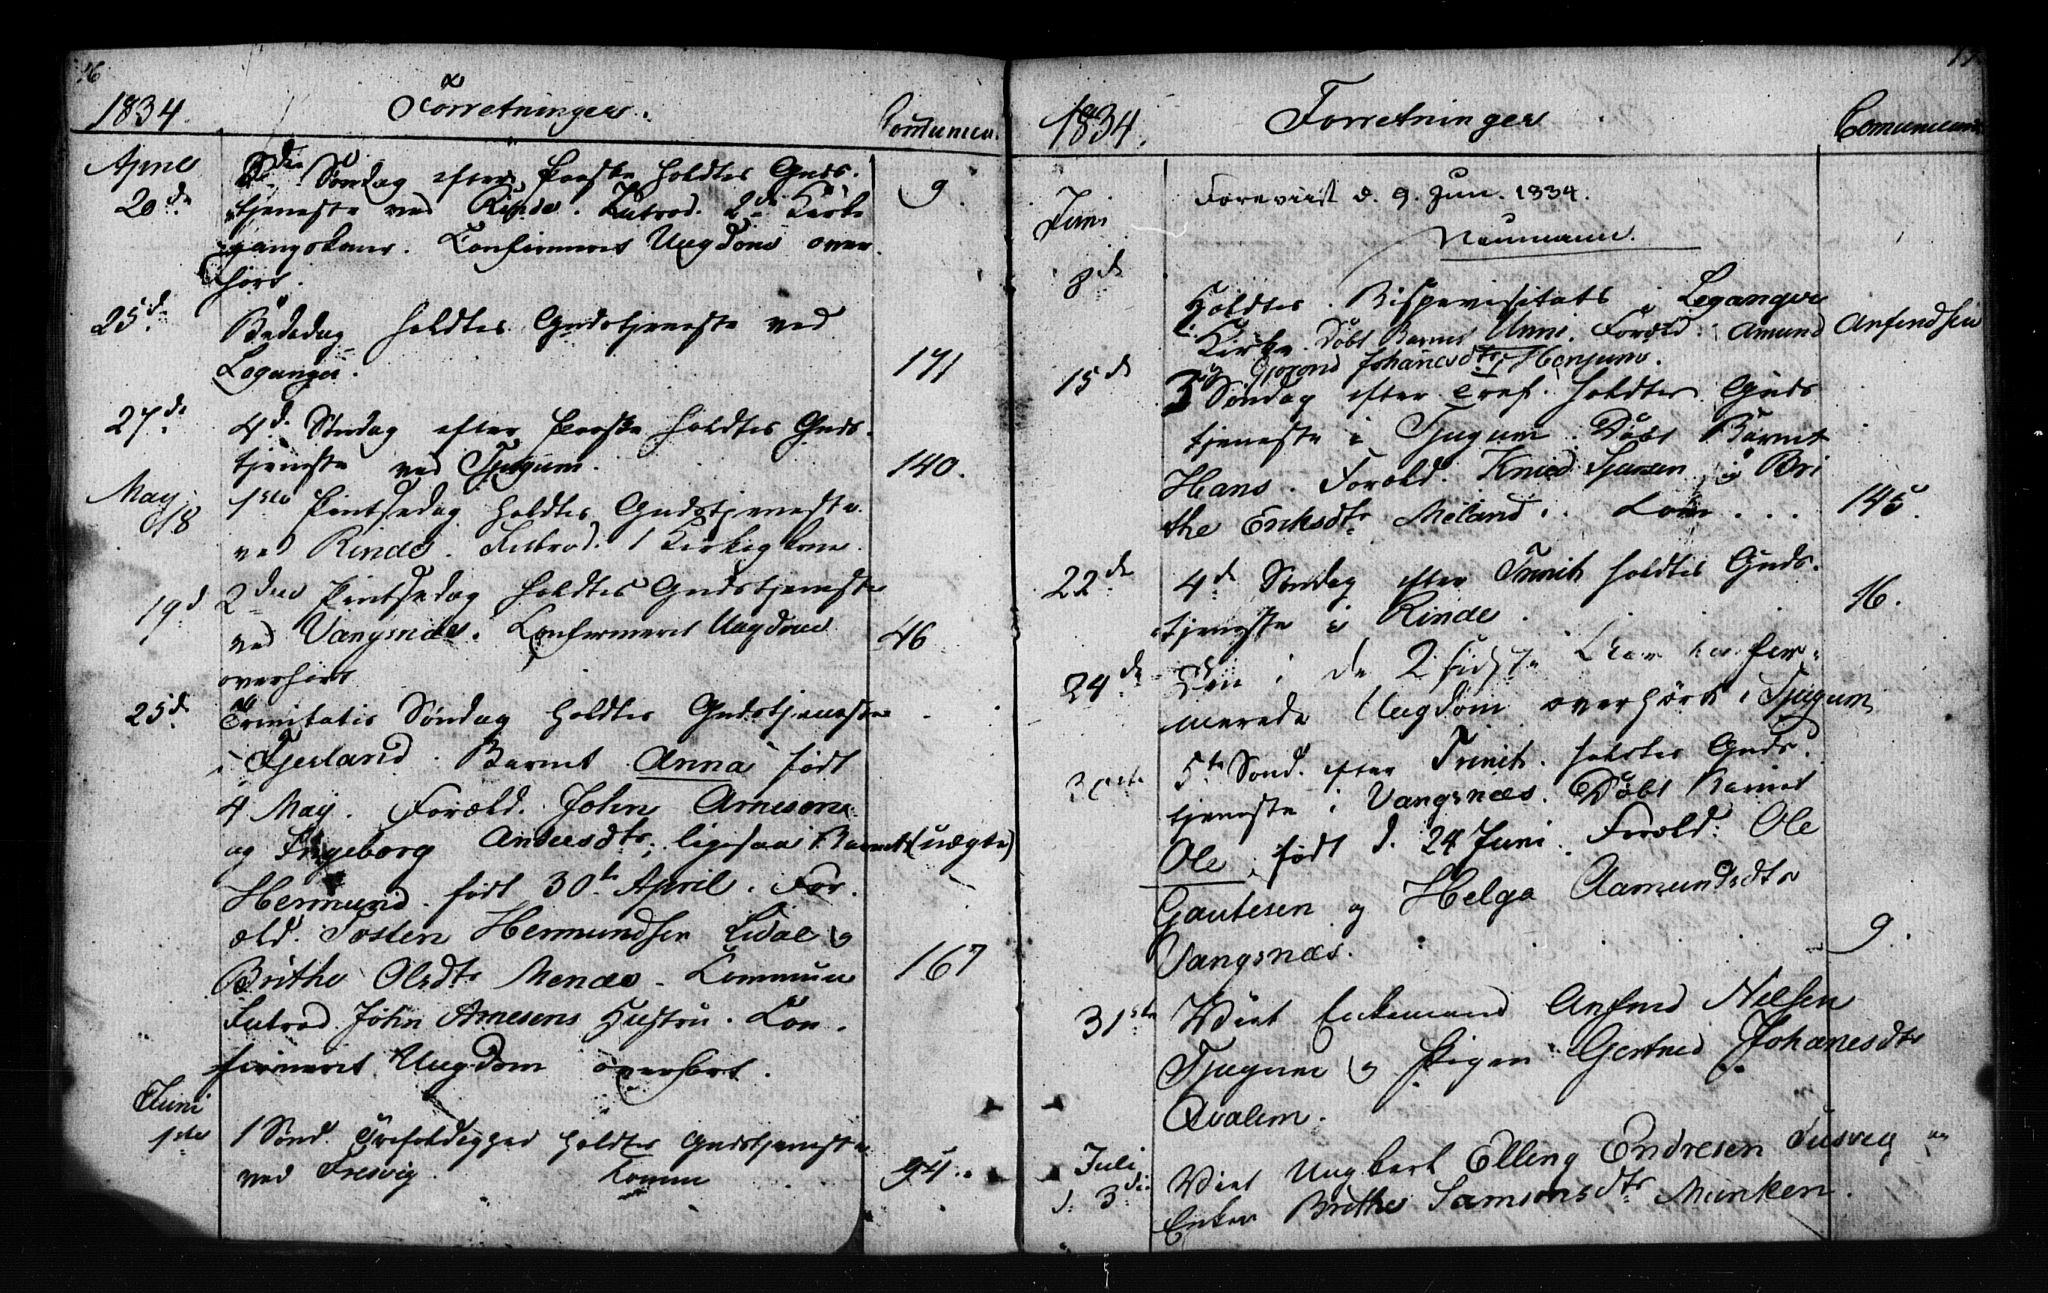 16
1834. Forretninger. Communica.
April
20de 3die Søndag efter Paaske holdtes Guds- 9.
tjeneste ved Rinde. Introd. 2de Kirke
gangskoner. Confirmeret Ungdom over
hørt.
25de Bededag holdtes Gudstjeneste ved
Leganger. 171
27de 4de Søndag efter Paaske holdtes Guds-
tjeneste ved Tjugum. 140.
May
18 1ste Pintsedag holdtes Gudstjeneste
ved Rinde. Introd. 1 Kirkeg.kone.
19d 2den Pintsedag holdtes Gudstjeneste
ved Vangsnæs. Confirmeret Ungdom 46
overhørt
25de Trinitatis Søndag holdtes Gudstjeneste
i Fjerland. Barnet Anna født
4 May. Foræld. John Arnesen
og Ingeborg Andersdtr, ligesaa Barnet (uægte)
Hermund født 30te April. For-
æld. Tosten Hermundsen Lidal og
Brithe Olsdtr Menæs - Commun 167
Introd. John Arnesens Hustru. Con-
firmeret Ungdom overhørt.
Juni
1ste 1 Sønd. Trefoldighed holdtes Gudstjeneste
ved Fresvig. Comm 94.
1834. Forretninger. Comunicanter
Juni Foreviist d. 9. Jun. 1834.
Neumann.
8de Holdtes Bispevisitats i Leganger
Kirke. Døbt Barnet Unni. Foræld: Amund Anfindsen
og Gjorond Johannesdtr Henjum.
15de 3 Søndag efter Tref. holdtes Guds
tjeneste i Tjugum. Døbt Barnet
Hans. Foræld. Knud Sjursen og Bri
the Eriksdtr Meland. Com... 145.
22de 4de Søndag efter Trinit. holdtes Guds-
tjeneste i Rinde. 16.
24de Den i de 2 sidste Aar confir-
merede Ungdom overhørt i Tjugum
30te 5te Sønd. efter Trinit. holdtes Guds-
tjeneste i Vangsnæs. Døbt Barnet
Ole født d. 24 Juni. Foræld: Ole
Gautesen og Helga Aamundsdtr
Vangsnæs. 9.
31te Viet Enkemand Anfind Nielsen
Tjugum og Pigen Gertrud Johanesdtr
Qvalem.
Juli
d. 3die Viet Ungkarl Elling Endresen Tusvig og
Enken Brithe Samsonsdtr Munken.